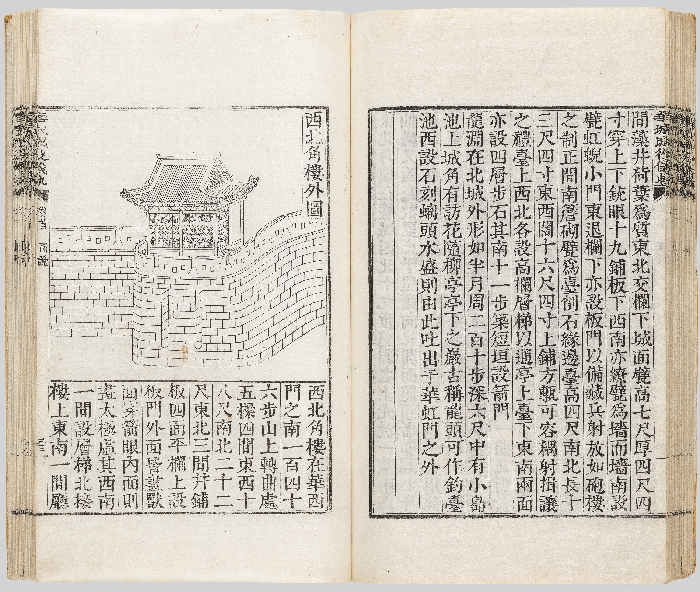 間藻井荷葉爲質東北交欄下城面甓高七尺厚四尺四
寸穿上下銃眼十九鋪板下西南亦繚甓爲墻而墻南設
甓虹蜺小門東退欄下亦設板門以備緘兵射放如砲樓
之制正間南簷砌甓爲臺倒石緣邊臺高四尺南北長十
三尺四寸東西闊十六尺四寸上鋪方甎可容耦射揖讓
之禮臺上西北各設高欄層梯以通亭上臺下東南兩面
亦設四層步石其南十一步築短垣設箭門
龍淵在北城外形如半月周二百十步深六尺中有小島
池上城角有訪花隨柳亭亭下之巖古稱龍頭可作釣臺
池西設石刻螭頭水盛則由此吐出于華虹門之外
西北角樓外圖
西北角樓在華西
門之南一百四十
六步山上轉曲處
五樑四間東西十
八尺南北二十二
尺東北三間幷鋪
板四面平欄上設
板門外面層畫獸
面穿箭眼內面則
畫太極處其西南
一間設層梯北樓
樓上東南一間廳